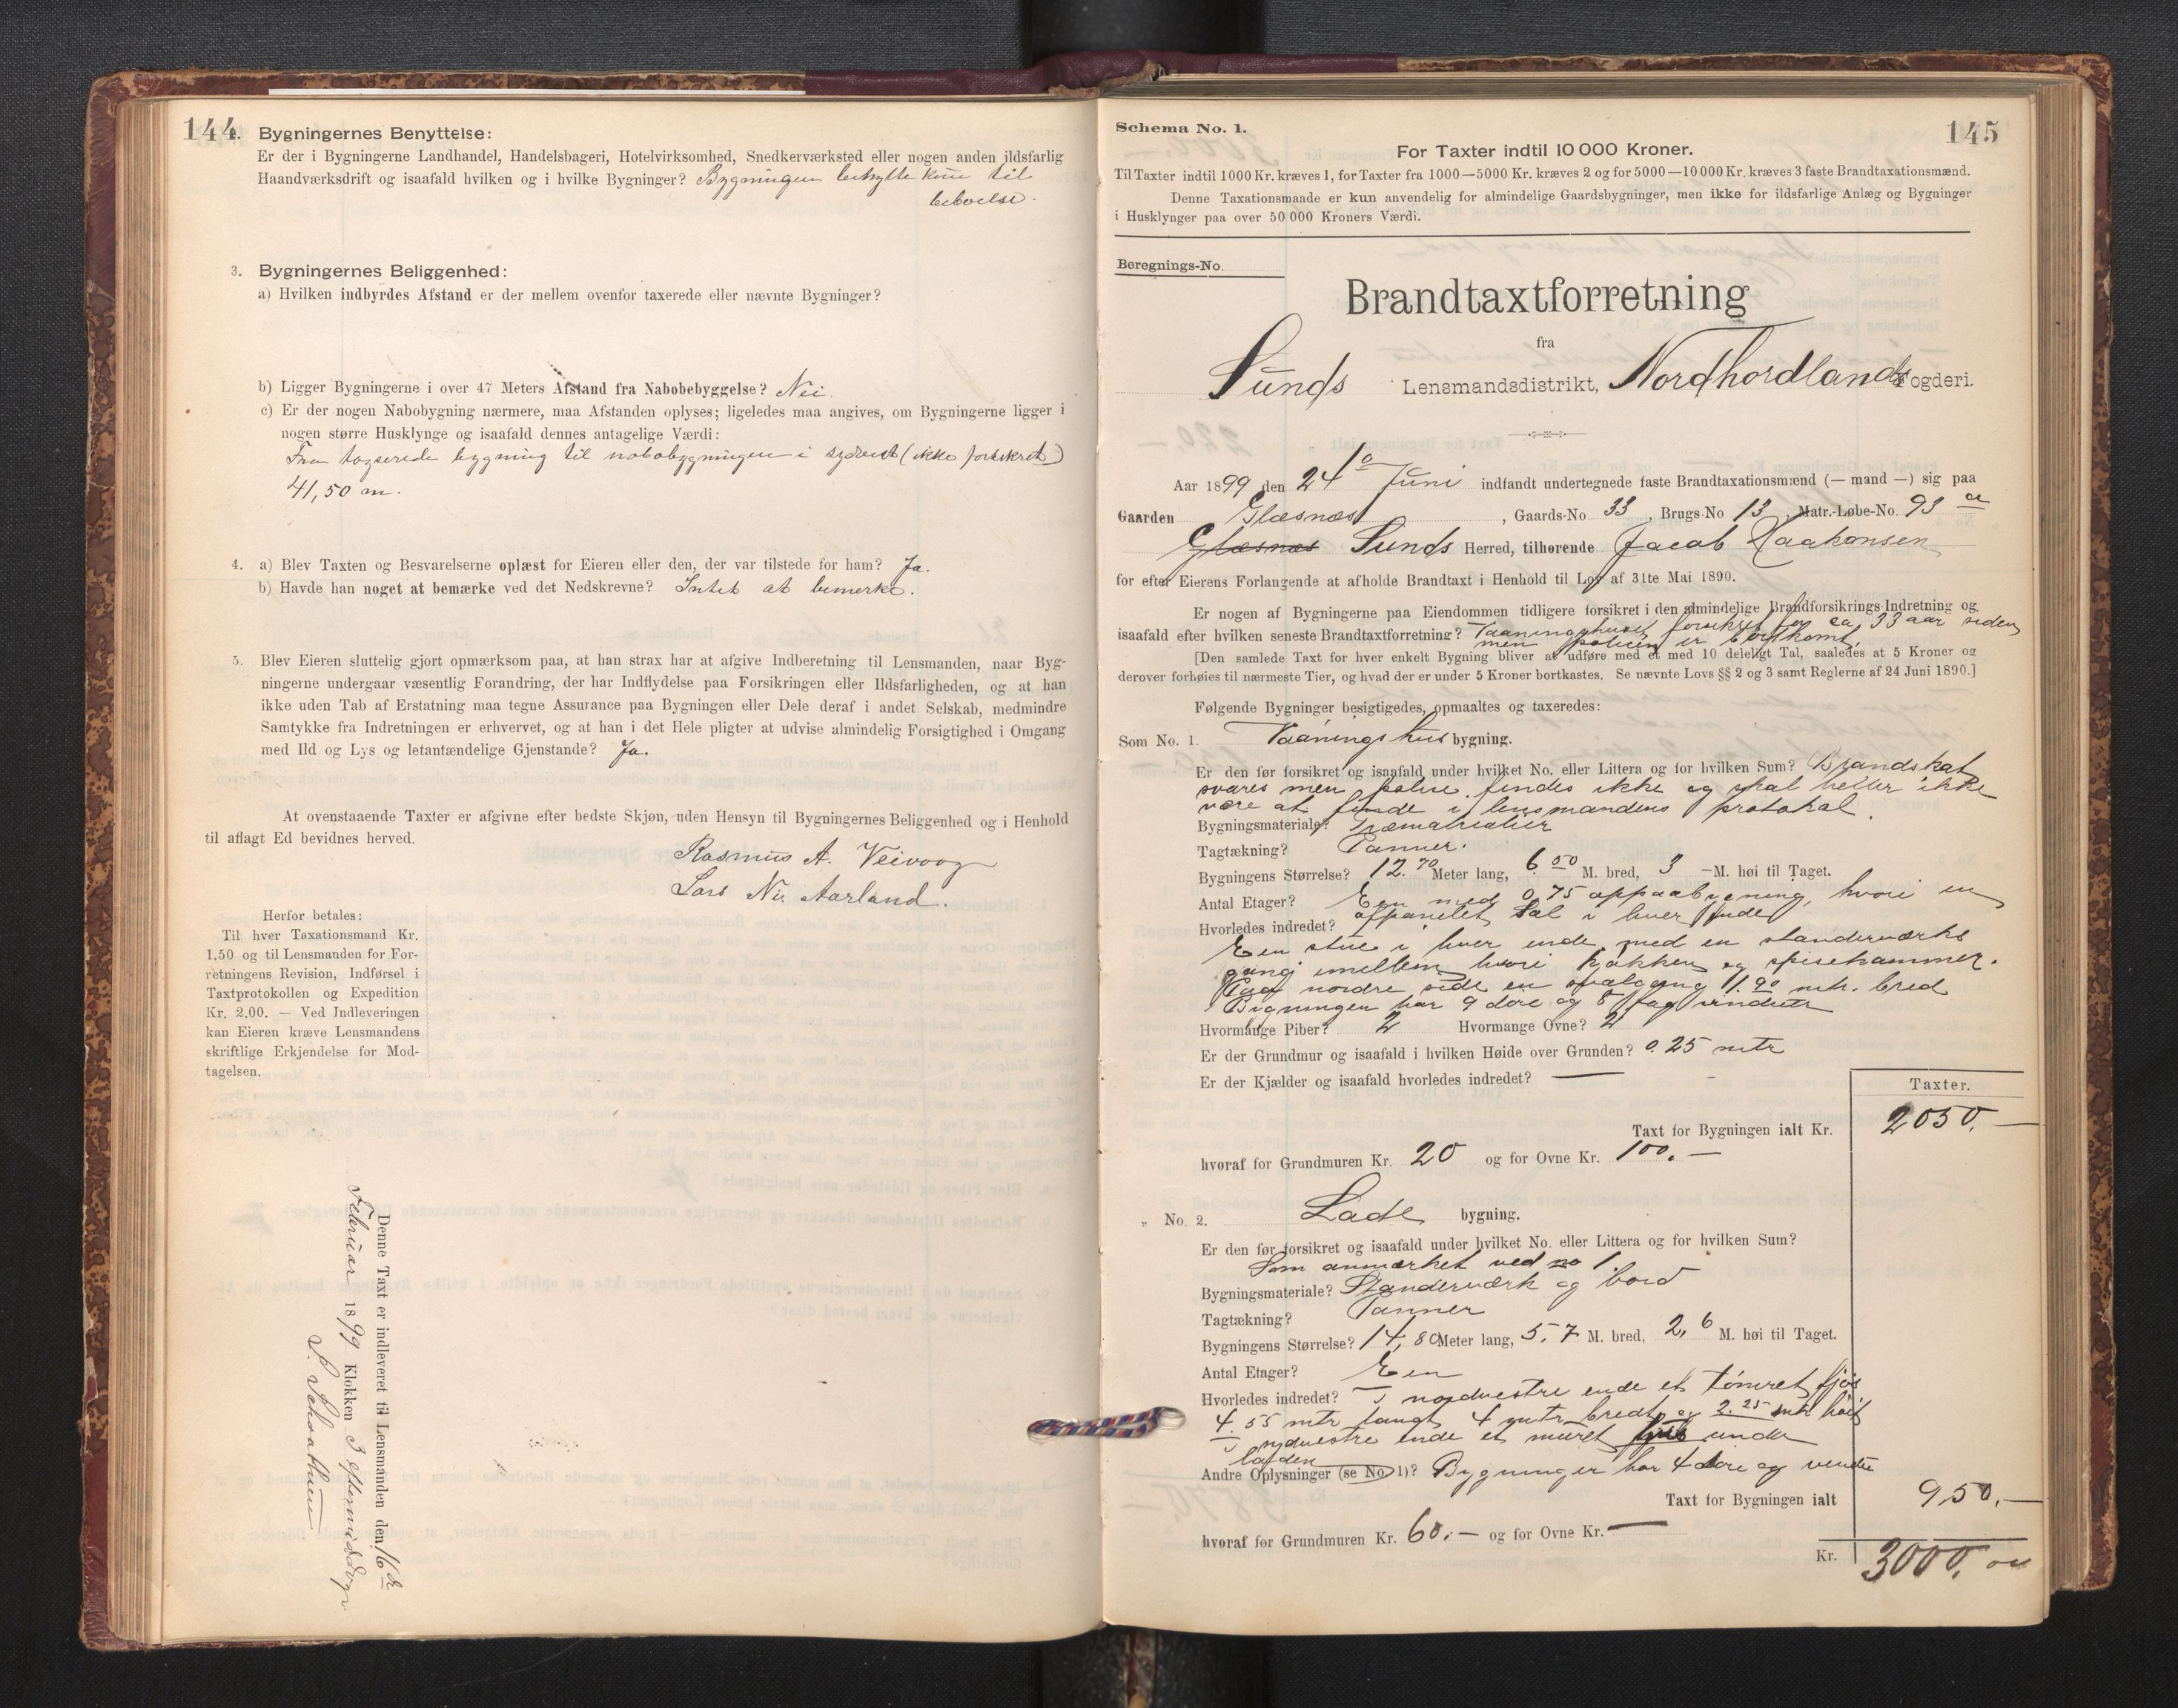 144
2. Bygningernes Benyttelse:
Er der i Bygningerne Landhandel, Handelsbageri, Hotelvirksomhed, Snedkerværksted eller nogen anden ildsfarlig
Haandværksdrift og isaafald hvilken og i hvilke Bygninger? Bygningen benyttes kun til
beboelse.
3. Bygningernes Beliggenhed:
a) Hvilken indbyrdes Afstand er der mellem ovenfor taxerede eller nævnte Bygninger?
b) Ligger Bygningerne i over 47 Meters Afstand fra Nabobebyggelse? Nei.
c) Er der nogen Nabobygning nærmere, maa Afstanden oplyses; ligeledes maa angives, om Bygningerne ligger i
nogen større Husklynge og isaafald dennes antagelige Værdi:
Fra taxerede bygning til nabobygningen i sydvest (ikke forsikret)
41,50 m.
4. a) Blev Taxten og Besvarelserne oplæst for Eieren eller den, der var tilstede for ham? Ja.
b) Havde han noget at bemærke ved det Nedskrevne? Intet at bemerke.
5. Blev Eieren sluttelig gjort opmærksom paa, at han strax har at afgive Indberetning til Lensmanden, naar Byg-
ningerne undergaar væsentlig Forandring, der har Indflydelse paa Forsikringen eller Ildsfarligheden, og at han
ikke uden Tab af Erstatning maa tegne Assurance paa Bygningen eller Dele deraf i andet Selskab, medmindre
Samtykke fra Indretningen er erhvervet, og at han i det Hele pligter at udvise almindelig Forsigtighed i Omgang
med Ild og Lys og letantændelige Gjenstande? Ja.
At ovenstaaende Taxter er afgivne efter bedste Skjøn, uden Hensyn til Bygningernes Beliggenhed og i Henhold
til aflagt Ed bevidnes herved.
Rasmus A. Veivoog
Lars Ni. Aarland.
Herfor betales:
Til hver Taxationsmand Kr.
1,50 og til Lensmanden for For-
retningens Revision, Indførsel i
Taxtprotokollen og Expedition
Kr. 2,00. — Ved Indleveringen
kan Eieren kræve Lensmandens
skriftlige Erkjendelse for Mod-
tagelsen.
Denne Taxt er indleveret til Lensmanden den 16de
Februar 1899 Klokken 3 eftermiddag.
145
Schema No. 1.
For Taxter indtil 10 000 Kroner.
Til Taxter indtil 1000 Kr. kræves 1, for Taxter fra 1000—5000 Kr. kræves 2 og for 5000—10 000 Kr. kræves 3 faste Brandtaxationsmænd.
Denne Taxationsmaade er kun anvendelig for almindelige Gaardsbygninger, men ikke for ildsfarlige Anlæg og Bygninger
i Husklynger paa over 50 000 Kroners Værdi.
Beregnings-No.
Brandtaxtforretning
fra
Sunds Lensmandsdistrikt, Nordhordlands Fogderi.
Aar 1899 den 24 Juni indfandt undertegnede faste Brandtaxationsmænd (— mand —) sig paa
Gaarden Glæsnæs, Gaards-No 33, Brugs-No 13, Matr.-Løbe-No. 93 a
Glæsnæs Sunds Herred, tilhørende Jacob Haakonsen
for efter Eierens Forlangende at afholde Brandtaxt i Henhold til Lov af 31te Mai 1890.
Er nogen af Bygningerne paa Eiendommen tidligere forsikret i den almindelige Brandforsikrings-Indretning og
isaafald efter hvilken seneste Brandtaxtforretning? Vaaningshuset forsikret for ca 33 aar siden
men policen er bortkomt,
[Den samlede Taxt for hver enkelt Bygning bliver at udføre med et med 10 deleligt Tal, saaledes at 5 Kroner og
derover forhøies til nærmeste Tier, og hvad der er under 5 Kroner bortkastes. Se nævnte Lovs §§ 2 og 3 samt Reglerne af 24 Juni 1890.]
Følgende Bygninger besigtigedes, opmaaltes og taxeredes:
Som No. 1. Vaaningshus bygning.
Er den før forsikret og isaafald under hvilket No. eller Littera og for hvilken Sum? Brandskat
svares men police findes ikke og skal heller ikke
være at finde i lensmandens protokol.
Bygningsmateriale? Træmaterialier
Tagtækning? Panner.
Bygningens Størrelse? 12.70 Meter lang, 6 50 M. bred, 3 — M. høi til Taget.
Antal Etager? Een med 0,75 oppaabygning, hvori en
Hvorledes indredet? afpanelet Sal i hver ende
Een stue i hver ende med en standerværks
gang imellem hvori kjøkken og spisekammer.
Paa nordre side en svalgang 11.90 mtr. bred
Bygningen har 9 døre og 8 fag vinduer
Hvormange Piber? 2 Hvormange Ovne? 2
Er der Grundmur og isaafald i hvilken Høide over Grunden? 0.25 mtr
Er der Kjælder og isaafald hvorledes indredet? —
Taxter.
Taxt for Bygningen ialt Kr. 2050,—
hvoraf for Grundmuren Kr. 20 og for Ovne Kr. 100.—
„ No. 2. Lade bygning.
Er den før forsikret og isaafald under hvilket No. eller Littera og for hvilken Sum?
Som anmærket ved no 1.
Bygningsmateriale? Standerværk og bord
Tagtækning? Panner
Bygningens Størrelse? 14,80 Meter lang, 5.7 M. bred, 2,6 M. høi til Taget.
Antal Etager? Een
Hvorledes indredet? I nordvestre ende et tømret fjøs
4.55 mtr langt 4 mtr bredt og 2.25 mtr høit
I sydvestre ende et muret under
laden
Andre Oplysninger (se No 1)? Bygninger har 4 døre og vindu
Taxt for Bygningen ialt 950.—
hvoraf for Grundmuren Kr. 60.— og for Ovne Kr. —
Kr. 3000,